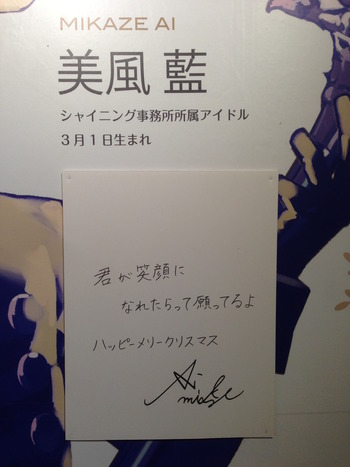 MIKAZE AI
美風 藍
シャイニング事務所所属アイドル
3月1日生まれ
君が笑顔に
なれたらって願ってるよ
ハッピーメリークリスマス
Ai
mikaze